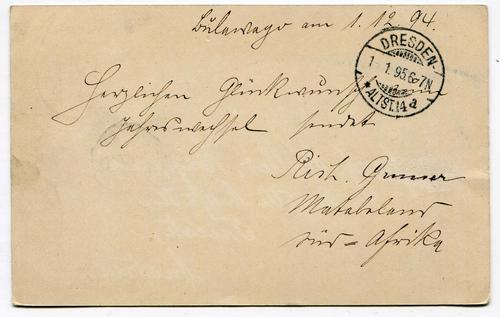 Bulawayo am 1.12.94.
DRESDEN-
1. 1. 95. 6-7N
* ALTST. 14 a
Herzlichen Glückwunsch zum
Jahreswechsel sendet
Rich.
Matabeleland
Süd=Afrika